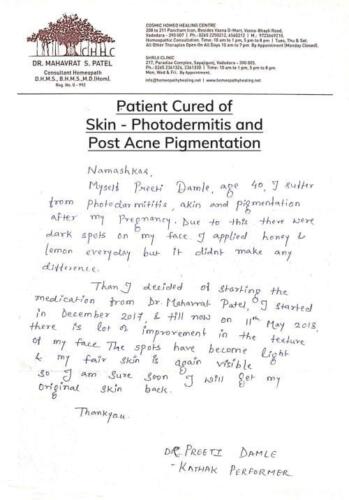 CHHC
DR. MAHAVRAT S. PATEL
Consultant Homeopath
D.H.M.S., B.H.M.S., M.D.(Hom).
Reg. No. G - 992
COSMIC HOMEO HEALING CENTRE
Homeopathic Consultation, Time: 10 am to 1 pm, 5 pm to 8 pm | Tues, Thu & Sat.
All Other Therapies Open On All Days 10 am to 7 pm By Appointment (Monday Closed).
SHRIJI CLINIC
Mon, Wed & Fri. By Appointment.
info@homeopathyhealing.net www.homeopathyhealing.net
Patient Cured of
Skin - Photodermitis and
Post Acne Pigmentation
Namashkar,
Myself Preeti Damle, age 40, I suffer
from Photodarmititis, akin and pigmentation
after my Pregnancy. Due to this there were
dark spots on my face. I applied honey &
lemon everyday but it didnt make any
difference.
Than I decided of starting the
medication from Dr. Mahavrat Patel, I started
in December 2017, & till now on 11th May 2018,
there is lot of improvement in the texture
of my face. The spots have become light
& my fair skin is again visible
so I am sure soon I will get my
original skin back.
Thankyou.
DR. PREETI DAMLE
- KATHAK PERFORMER